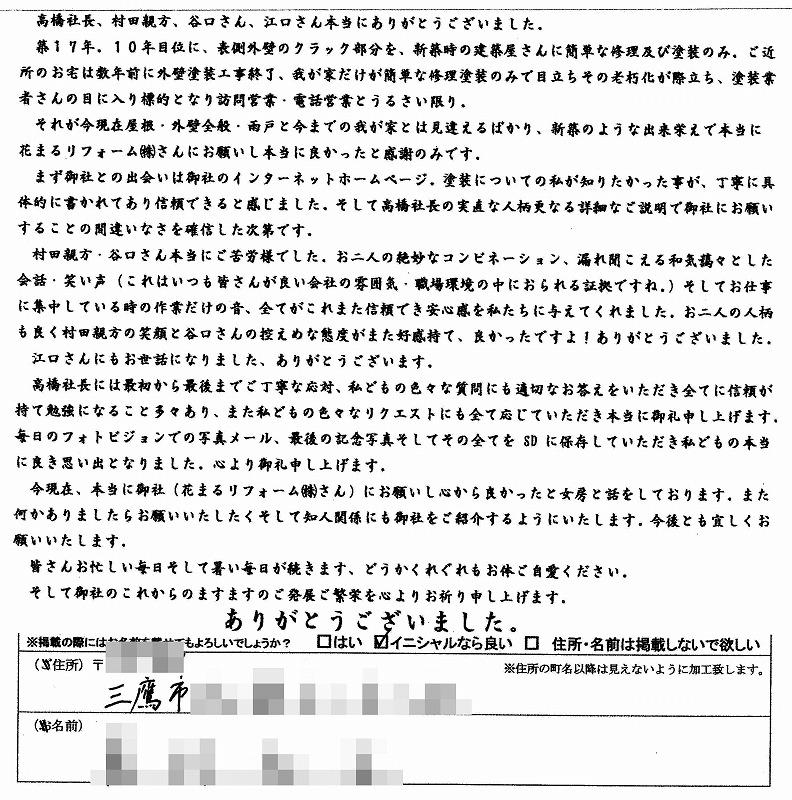 高橋社長、村田親方、谷口さん、江口さん本当にありがとうございました。
築17年。10年目位に、表側外壁のクラック部分を、新築時の建築屋さんに簡単な修理及び塗装のみ。ご近
所のお宅は数年前に外壁塗装工事終了、我が家だけが簡単な修理塗装のみで目立ちその老朽化が際立ち、塗装業
者さんの目に入り標的となり訪問営業・電話営業とうるさい限り。
それが今現在屋根・外壁全般・雨戸と今までの我が家とは見違えるばかり、新築のような出来栄えで本当に
花まるリフォーム㈱さんにお願いし本当に良かったと感謝のみです。
まず御社との出会いは御社のインターネットホームページ。塗装についての私が知りたかった事が、丁寧に具
体的に書かれてあり信頼できると感じました。そして高橋社長の実直な人柄更なる詳細なご説明で御社にお願い
することの間違いなさを確信した次第です。
村田親方・谷口さん本当にご苦労様でした。お二人の絶妙なコンビネーション、漏れ聞こえる和気藹々とした
会話・笑い声（これはいつも皆さんが良い会社の雰囲気・職場環境の中におられる証拠ですね。）そしてお仕事
に集中している時の作業だけの音、全てがこれまた信頼でき安心感を私たちに与えてくれました。お二人の人柄
も良く村田親方の笑顔と谷口さんの控えめな態度がまた好感持て、良かったですよ！ありがとうございました。
江口さんにもお世話になりました、ありがとうございます。
高橋社長には最初から最後までご丁寧な応対、私どもの色々な質問にも適切なお答えをいただき全てに信頼が
持て勉強になること多々あり、また私どもの色々なリクエストにも全て応じていただき本当に御礼申し上げます。
毎日のフォトビジョンでの写真メール、最後の記念写真そしてその全てを SD に保存していただき私どもの本当
に良き思い出となりました。心より御礼申し上げます。
今現在、本当に御社（花まるリフォーム㈱さん）にお願いし心から良かったと女房と話をしております。また
何かありましたらお願いいたしたくそして知人関係にも御社をご紹介するようにいたします。今後とも宜しくお
願いいたします。
皆さんお忙しい毎日そして暑い毎日が続きます、どうかくれぐれもお体ご自愛ください。
そして御社のこれからのますますのご発展ご繁栄を心よりお祈り申し上げます。
ありがとうございました。
※掲載の際にはお名前を載せてもよろしいでしょうか？ □はい ☑イニシャルなら良い □ 住所・名前は掲載しないで欲しい
住所）〒 ※住所の町名以降は見えないように加工致します。
三鷹市
名前）